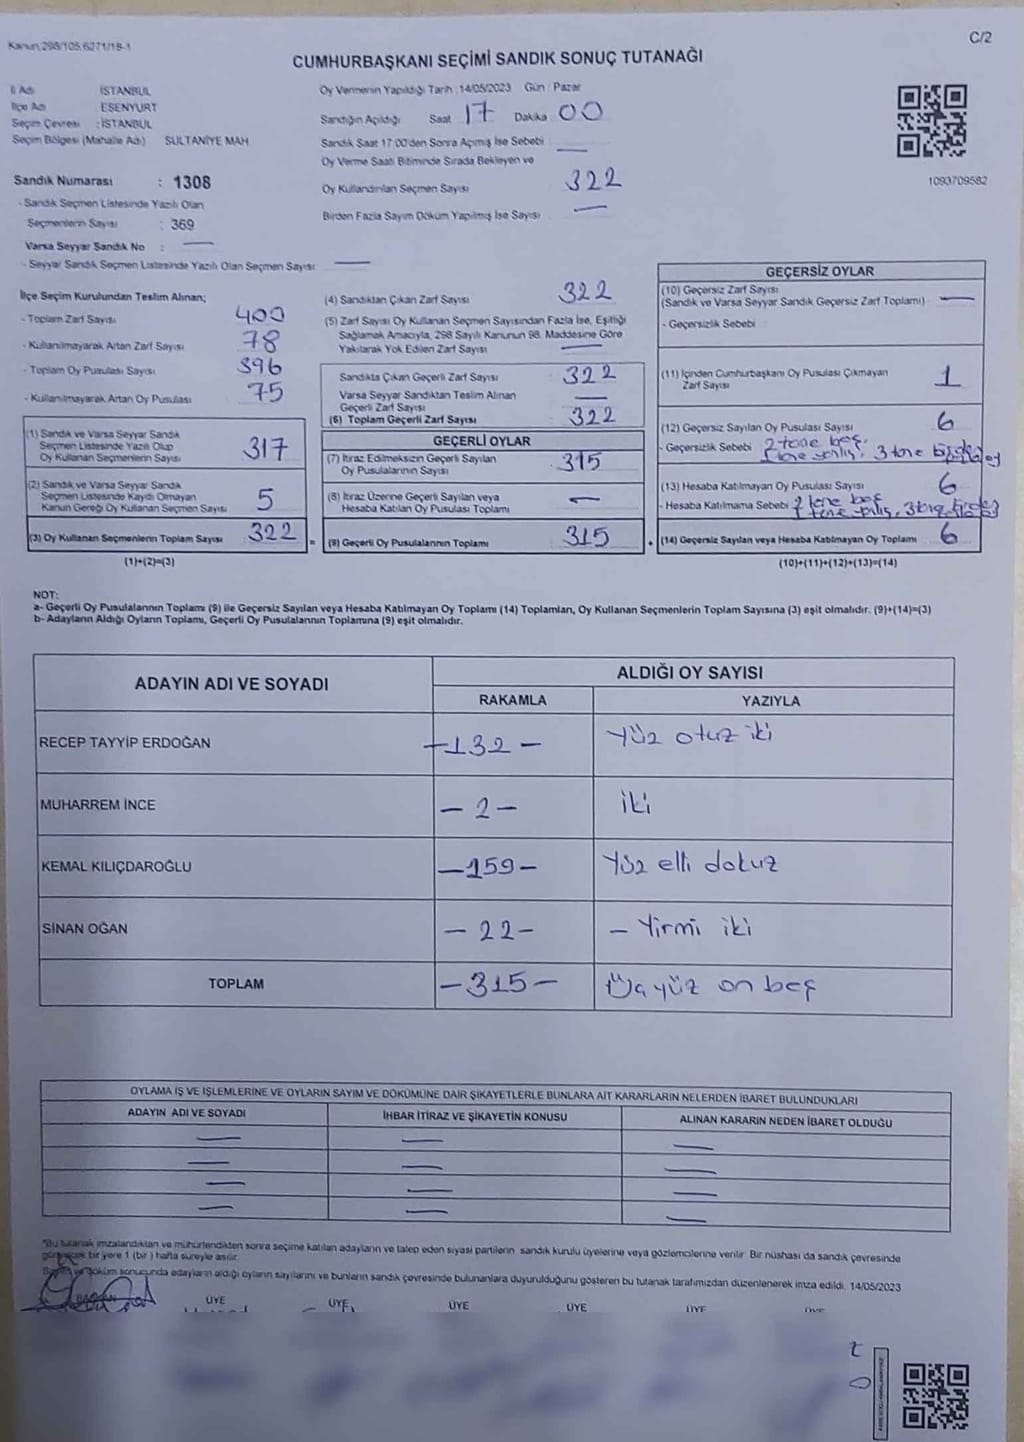 Kanun,298/105,6271/18-1
C/2
CUMHURBAŞKANI SEÇİMİ SANDIK SONUÇ TUTANAĞI
İl Adı İSTANBUL
İlçe Adı ESENYURT
Seçim Çevresi : İSTANBUL
Seçim Bölgesi (Mahalle Adı) SULTANİYE MAH
Sandık Numarası : 1308
- Sandık Seçmen Listesinde Yazılı Olan
Seçmenlerin Sayısı : 369
Varsa Seyyar Sandık No : —
- Seyyar Sandık Seçmen Listesinde Yazılı Olan Seçmen Sayısı —
Oy Vermenin Yapıldığı Tarih : 14/05/2023 Gün : Pazar
Sandığın Açıldığı Saat 17 Dakika 00
Sandık Saat 17:00'den Sonra Açımış İse Sebebi —
Oy Verme Saati Bitiminde Sırada Bekleyen ve
Oy Kullandırılan Seçmen Sayısı 322
Birden Fazla Sayım Döküm Yapılmış İse Sayısı —
1093709582
İlçe Seçim Kurulundan Teslim Alınan;
- Toplam Zarf Sayısı 400
- Kullanılmayarak Artan Zarf Sayısı 78
- Toplam Oy Pusulası Sayısı 396
- Kullanılmayarak Artan Oy Pusulası 75
(1) Sandık ve Varsa Seyyar Sandık
Seçmen Listesinde Yazılı Olup
Oy Kullanan Seçmenlerin Sayısı 317
(2) Sandık ve Varsa Seyyar Sandık
Seçmen Listesinde Kayıtlı Olmayan
Kanun Gereği Oy Kullanan Seçmen Sayısı 5
(3) Oy Kullanan Seçmenlerin Toplam Sayısı 322
(1)+(2)=(3)
(4) Sandıktan Çıkan Zarf Sayısı 322
(5) Zarf Sayısı Oy Kullanan Seçmen Sayısından Fazla İse, Eşitliği
Sağlamak Amacıyla, 298 Sayılı Kanunun 98. Maddesine Göre
Yakılarak Yok Edilen Zarf Sayısı —
Sandıkta Çıkan Geçerli Zarf Sayısı 322
Varsa Seyyar Sandıktan Teslim Alınan
Geçerli Zarf Sayısı —
(6) Toplam Geçerli Zarf Sayısı 322
GEÇERLİ OYLAR
(7) İtiraz Edilmeksizin Geçerli Sayılan
Oy Pusulalarının Sayısı 315
(8) İtiraz Üzerine Geçerli Sayılan veya
Hesaba Katılan Oy Pusulası Toplamı —
= (9) Geçerli Oy Pusulalarının Toplamı 315
GEÇERSİZ OYLAR
(10) Geçersiz Zarf Sayısı
(Sandık ve Varsa Seyyar Sandık Geçersiz Zarf Toplamı) —
- Geçersizlik Sebebi
(11) İçinden Cumhurbaşkanı Oy Pusulası Çıkmayan
Zarf Sayısı 1
(12) Geçersiz Sayılan Oy Pusulası Sayısı 6
- Geçersizlik Sebebi 2 tane boş, 3 tane oy
(13) Hesaba Katılmayan Oy Pusulası Sayısı 6
- Hesaba Katılmama Sebebi 2 tane boş
+ (14) Geçersiz Sayılan veya Hesaba Katılmayan Oy Toplamı 6
(10)+(11)+(12)+(13)=(14)
NOT:
a- Geçerli Oy Pusulalarının Toplamı (9) ile Geçersiz Sayılan veya Hesaba Katılmayan Oy Toplamı (14) Toplamları, Oy Kullanan Seçmenlerin Toplam Sayısına (3) eşit olmalıdır. (9)+(14)=(3)
b- Adayların Aldığı Oyların Toplamı, Geçerli Oy Pusulalarının Toplamına (9) eşit olmalıdır.
ADAYIN ADI VE SOYADI ALDIĞI OY SAYISI
RAKAMLA YAZIYLA
RECEP TAYYİP ERDOĞAN -132- Yüz otuz iki
MUHARREM İNCE -2- iki
KEMAL KILIÇDAROĞLU -159- Yüz elli dokuz
SİNAN OĞAN -22- - Yirmi iki
TOPLAM -315- Üç yüz on beş
OYLAMA İŞ VE İŞLEMLERİNE VE OYLARIN SAYIM VE DÖKÜMÜNE DAİR ŞİKAYETLERLE BUNLARA AİT KARARLARIN NELERDEN İBARET BULUNDUKLARI
ADAYIN ADI VE SOYADI İHBAR İTİRAZ VE ŞİKAYETİN KONUSU ALINAN KARARIN NEDEN İBARET OLDUĞU
*Bu tutanak imzalandıktan ve mühürlendikten sonra seçime katılan adayların ve talep eden siyasi partilerin sandık kurulu üyelerine veya gözlemcilerine verilir. Bir nüshası da sandık çevresinde
görülecek bir yere 1 (bir) hafta süreyle asılır.
Sayım ve döküm sonucunda adayların aldığı oyların sayılarını ve bunların sandık çevresinde bulunanlara duyurulduğunu gösteren bu tutanak tarafımızdan düzenlenerek imza edildi. 14/05/2023
ÜYE ÜYE ÜYE ÜYE ÜYE ÜYE